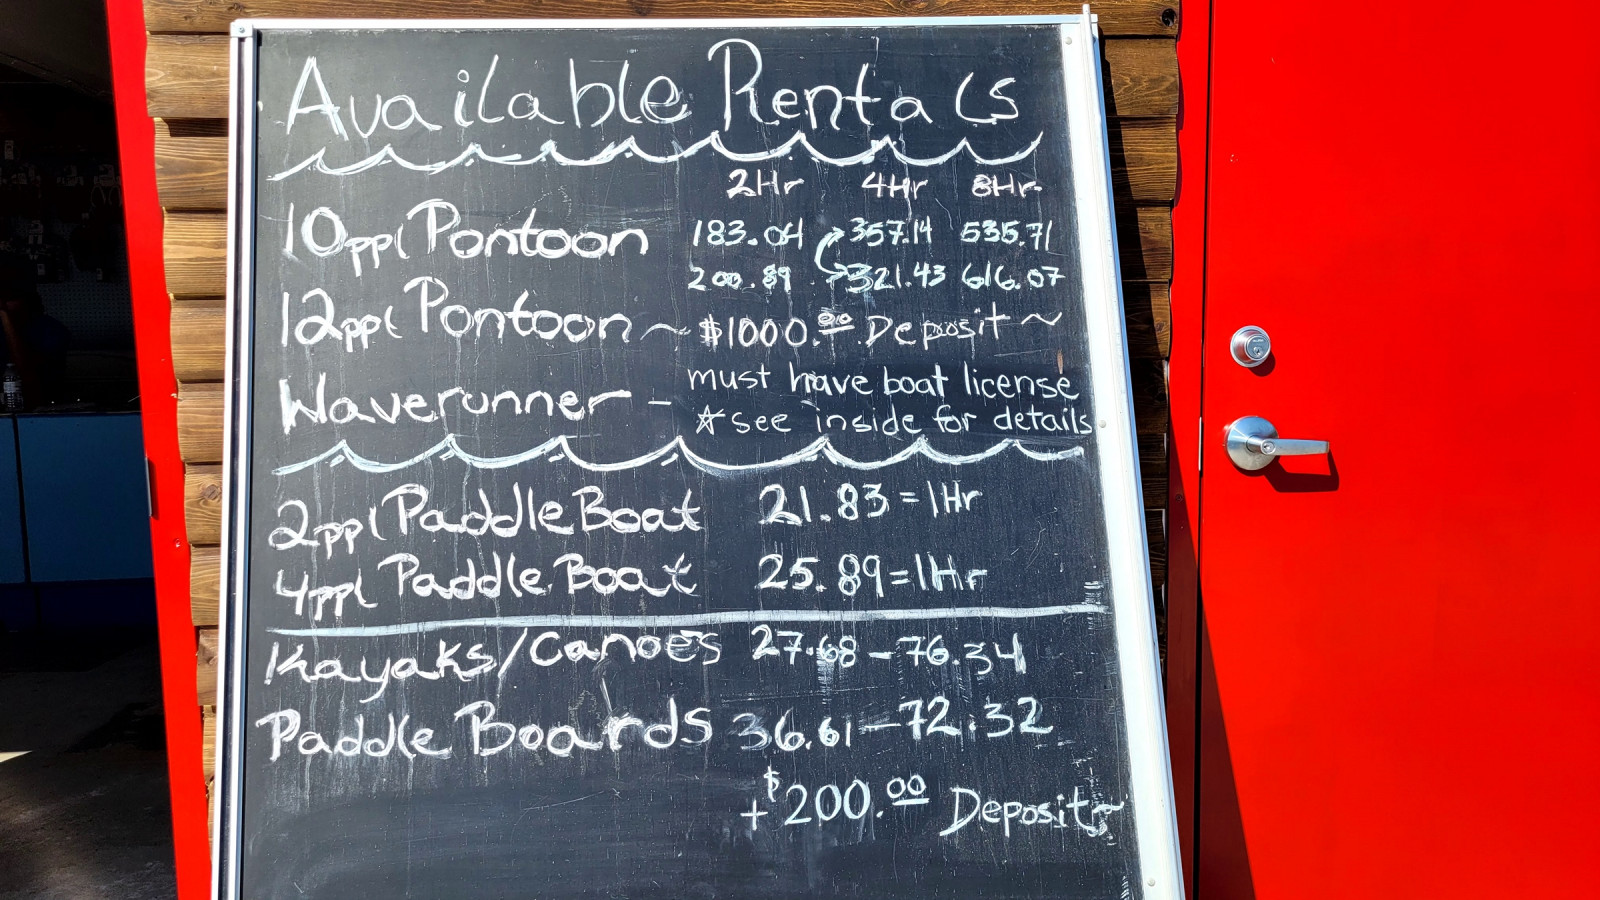 Available Rentals
2Hr 4Hr 8Hr
10ppl Pontoon 183.04 357.14 535.71
200.89 321.43 616.07
12ppl Pontoon ~ $1000.00 Deposit ~
Waverunner - must have boat license
☆ see inside for details
2ppl Paddle Boat 21.83 = 1Hr
4ppl Paddle Boat 25.89 = 1Hr
Kayaks/Canoes 27.68 - 76.34
Paddle Boards 36.61 - 72.32
+ $200.00 Deposit ~